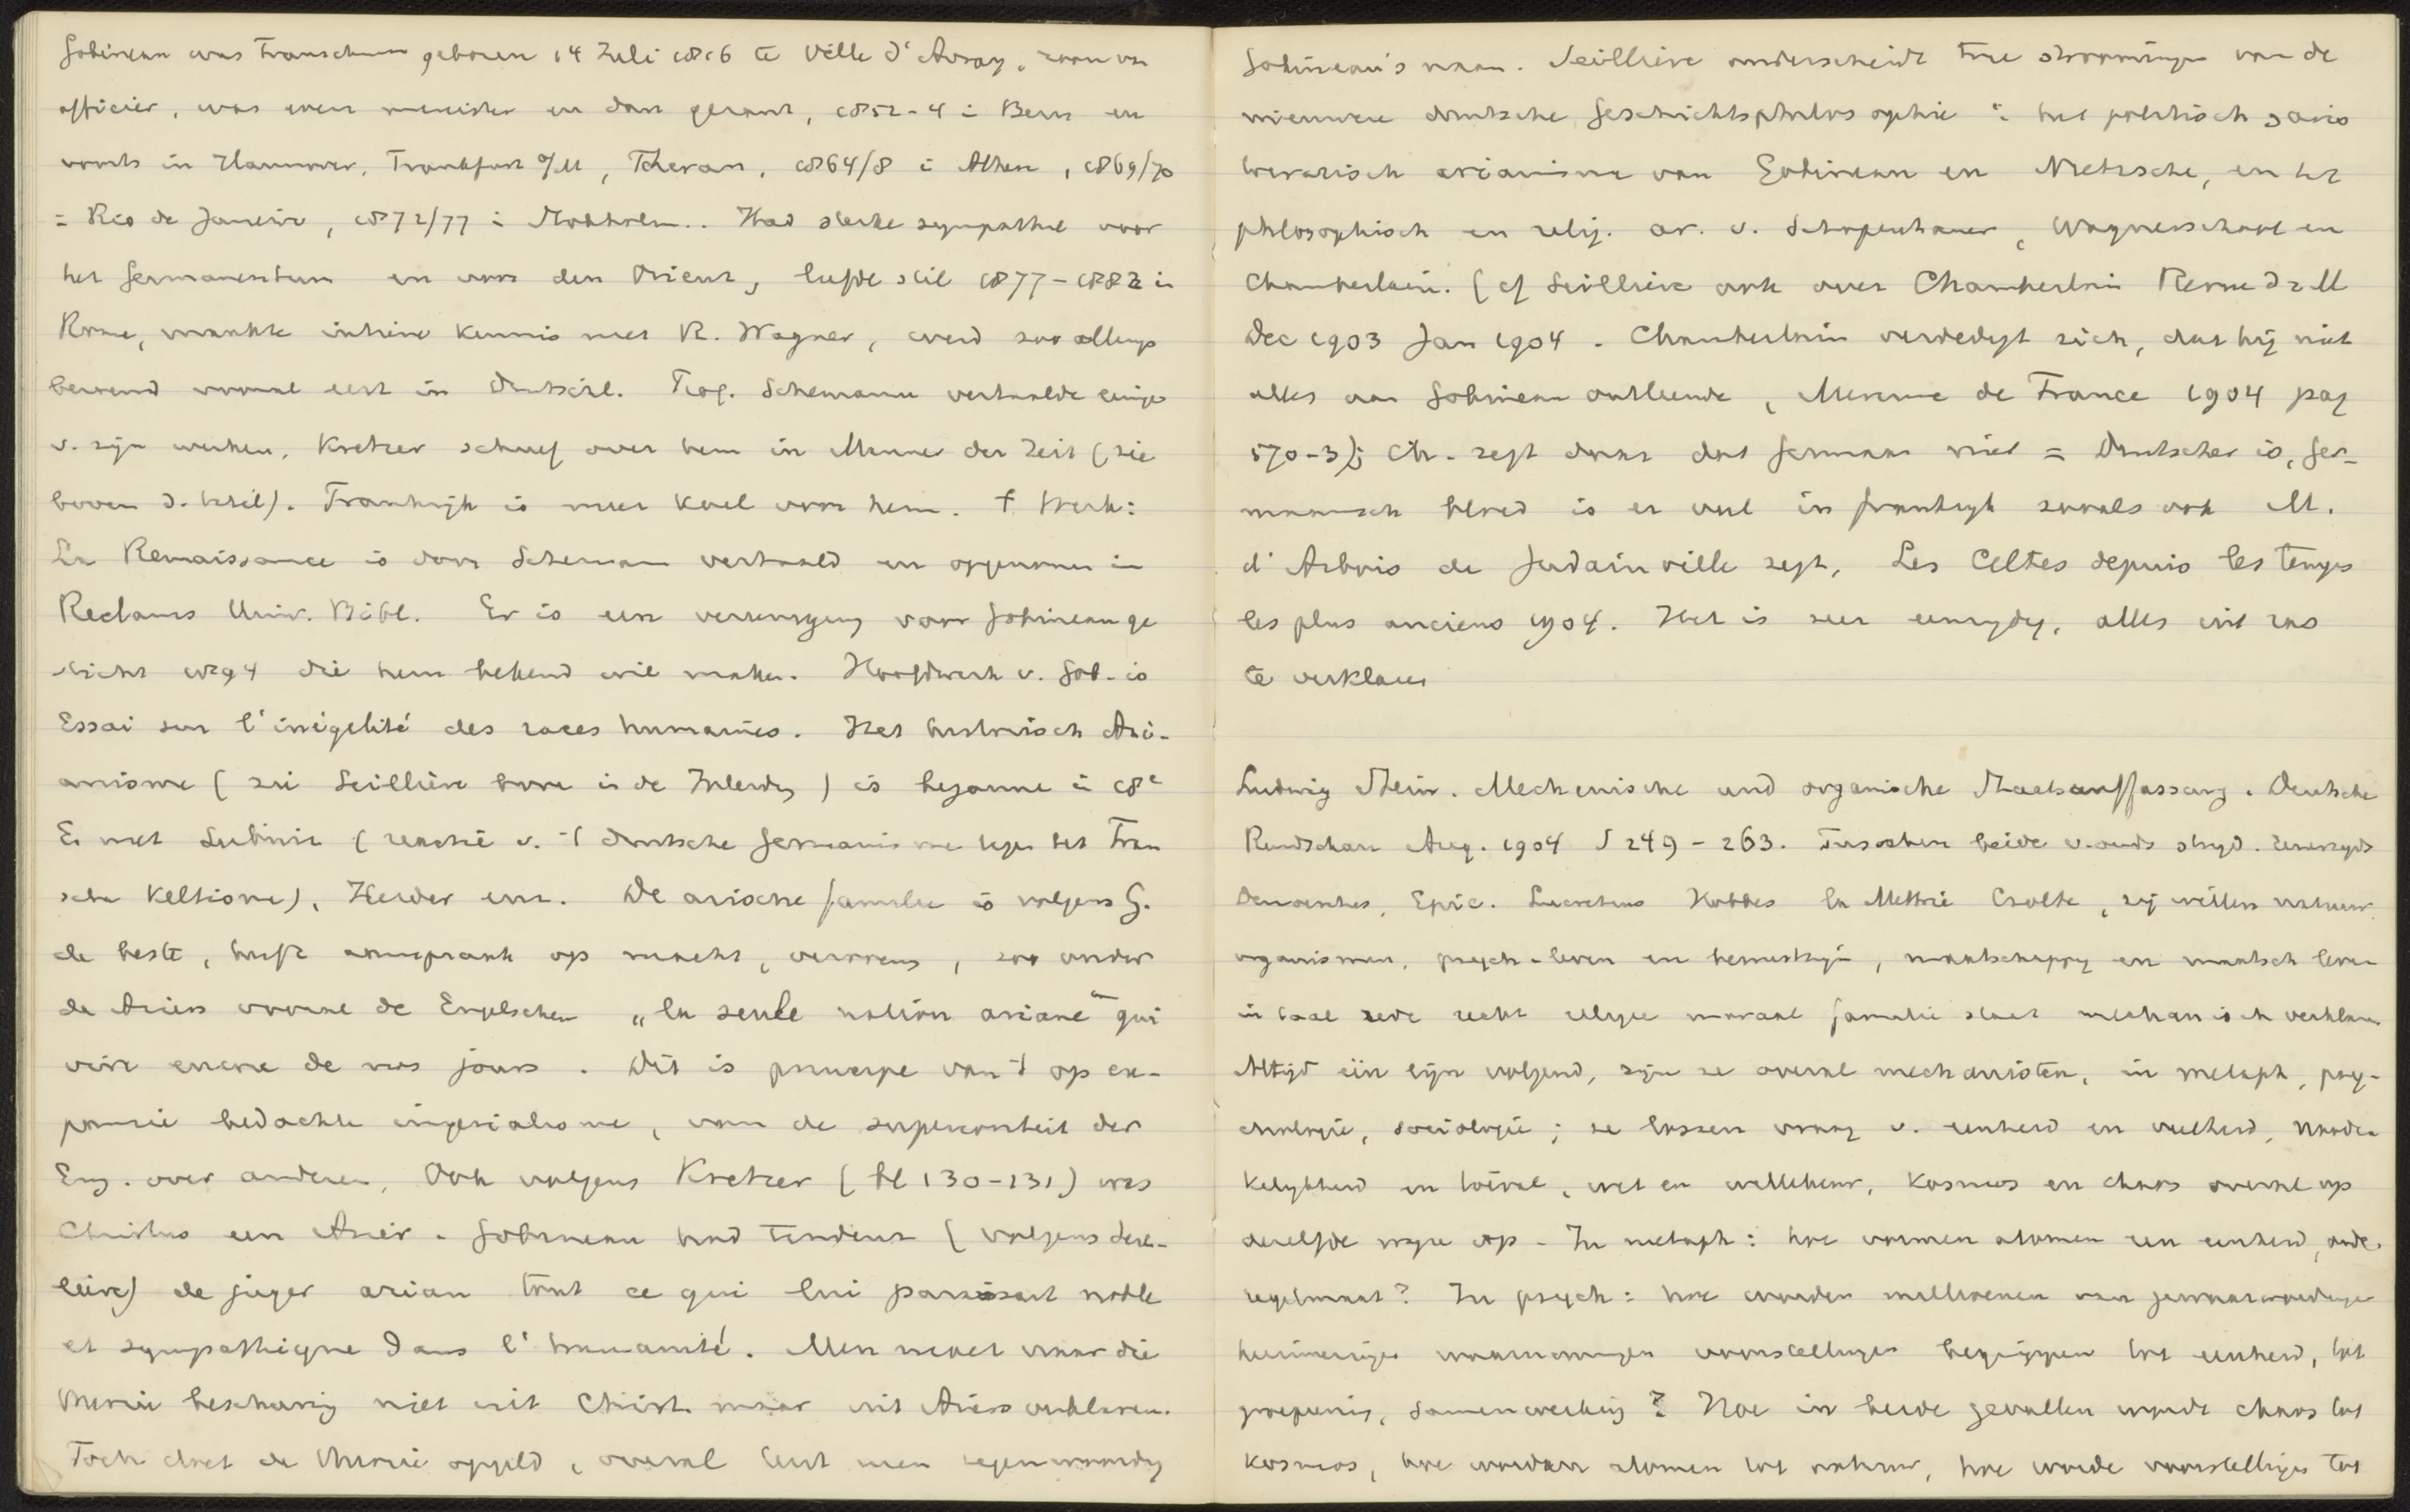 Gobineau was Franschman geboren 14 Juli 1816 te Ville d'Avray, zoon van
officier, was even minister en dan gezant, 1852-4 i Bern en
voorts in Hannover, Frankfurt a/M, Teheran, 1864/8 i Athen, 1869/70
i Rio de Janeiro, 1872/77 i Stokholm.. Had sterke sympathie voor
het Germanentum en voor den Orient, leefde stil 1877-1882 in
Rome, maakte intieme kennis met R. Wagner, werd zoo allengs
beroemd vooral eerst in Duitschl. Prof. Schemann vertaalde eenige
v. zijn werken, Kretzer schreef over hem in Männer der Zeit (zie
boven d. titel). Frankrijk is meer koel voor hem. † Werk:
La Renaissance is door Scheman vertaald en opgenomen in
Reclams Univ. Bibl. Er is een vereeniging voor Gobineau ge
sticht 1894 die hem bekend wil maken. Hoofdwerk v. Gob. is
Essai sur l'inégalité des races humaines. Het historisch Ari-
anisme (zei Seillière in de Inleidg) is begonnen i 18e
E. met Leibniz (reactie v. 't duitsche Germanisme tegen het Fran
sche Keltisme), Herder enz. De arische familie is volgens G.
de beste, heeft aanspraak op macht, verovering, zoo onder
de Ariers vooral de Engelschen „la seule nation ariane" qui
vive encore de nos jours. Dit is principe van 't op ex-
pansie bedachte imperialisme, van de superioriteit der
Eng. over anderen. Ook volgens Kretzer (bl 130-131) was
Christus een Ariër. Gobineau had tendenz (volgens Seil-
lière) de juger arian tout ce qui lui paraissait noble
et sympathique dans l'humanité. Men moet naar die
theorie beschaving niet uit Christ. maar uit Ariers verklaren.
Toch doet de theorie opgeld, overal leest men tegenwoordig
Gobineau's naam. Seillière onderscheidt twee stroomingen van de
nieuwere duitsche Geschichtsphilosophie: het politisch socio
literarisch arianisme van Gobineau en Nietzsche, en het
philosophisch en relig. ar. v. Schopenhauer, Wagnerschool en
Chamberlain. (cf Seillière ook over Chamberlain Revue d 2 M
Dec 1903 Jan 1904. Chamberlain verdedigt zich, dat hij niet
alles aan Gobineau ontleende, Mercure de France 1904 pag
570-3); Ch. zegt daar dat Germaan niet = Duitscher is, ger-
maansch bloed is er veel in frankrijk zooals ook M.
d'Arbois de Jubainville zegt, Les Celtes depuis les temps
les plus anciens 1904. Het is zeer eenzydig, alles uit ras
te verklaren
Ludwig Stein. Mechanische und organische Staatsauffassung. Deutsche
Rundschau Aug. 1904 S 249-263. Tusschen beide v. ouds stryd. Eenerzyds
Democritus, Epic. Lucretius Hobbes la Mettrie Czolbe, zij willen natuur
organismen, psych-leven en bewustzijn, maatschappy en maatsch leven
in taal zede recht religie moraal familie staat mechanisch verklaren
Altijd één lijn volgend, zijn ze overal mechanisten, in metaph, psy-
chologie, sociologie; ze lossen vraag v. eenheid en veelheid, noodza
kelykheid en toeval, wet en willekeur, kosmos en chaos overal op
dezelfde wyze op. In metaph: hoe vormen atomen een eenheid, orde,
regelmaat? In psych: hoe worden millioenen van gewaarwordingen
herinneringen waarnemingen voorstellingen begrippen tot eenheid, tot
groepeering, samenwerking? Hoe in beide gevallen wordt chaos tot
kosmos, hoe worden atomen tot natuur, hoe worde voorstellingen tot